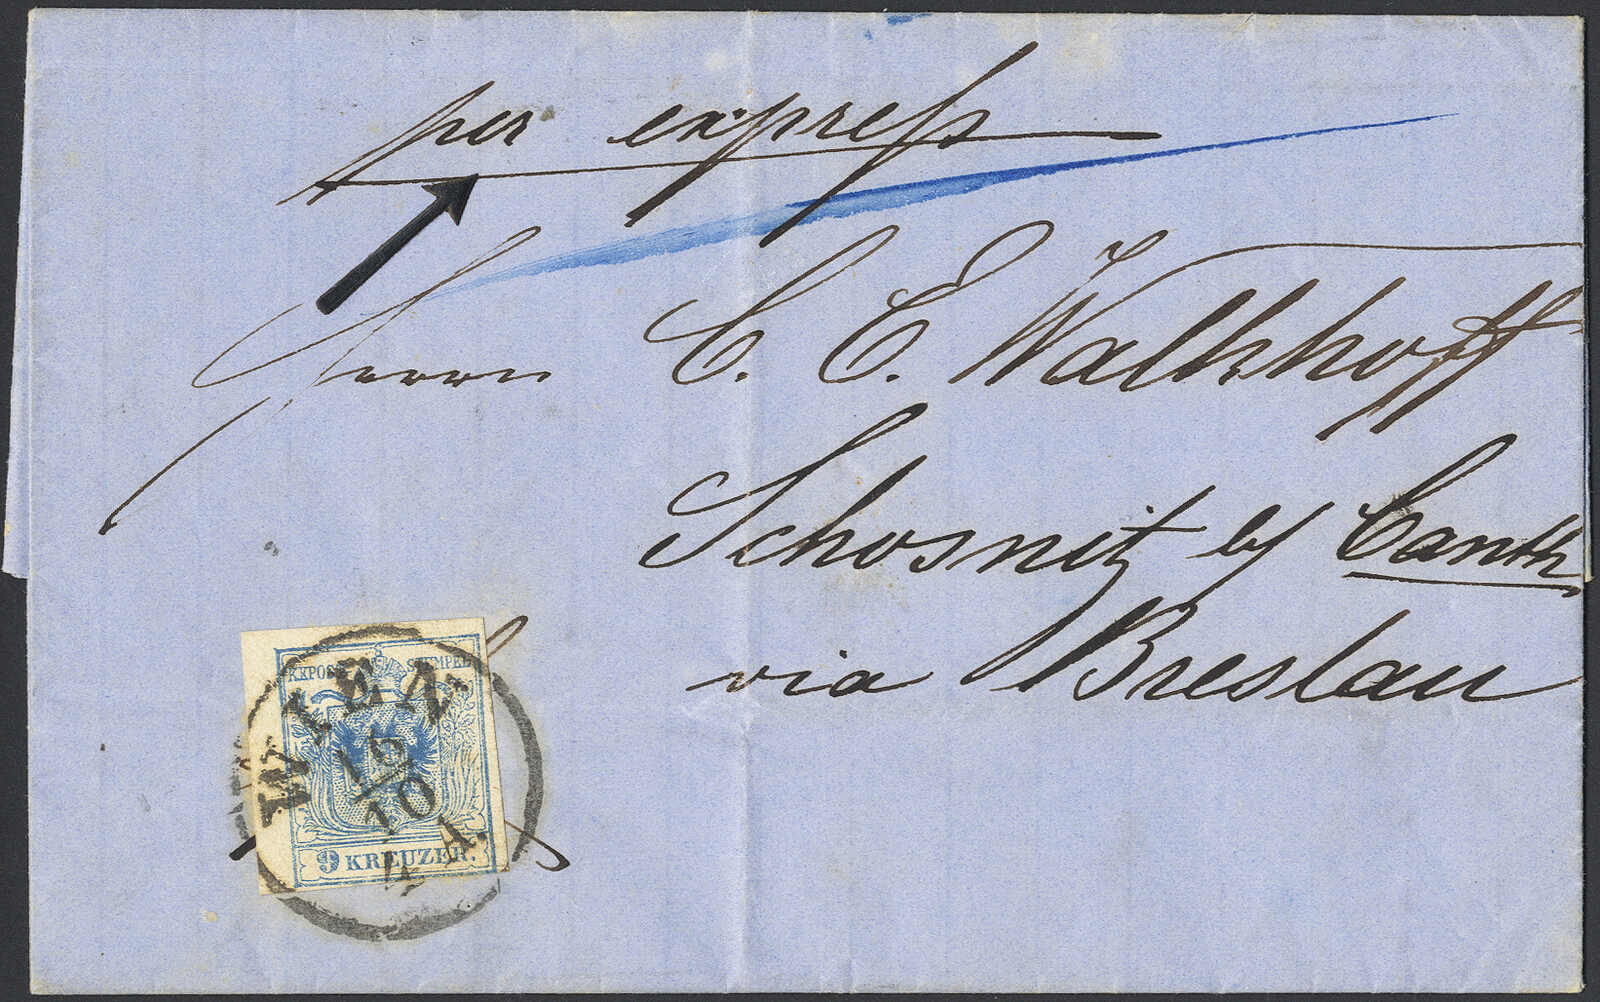 per expreſs
Herrn C. E. Walkhoff
Schosnitz b/ Canth
via Breslau
KKPOST STEMPEL
WIEN
15/10
4 A.
9 KREUZER.